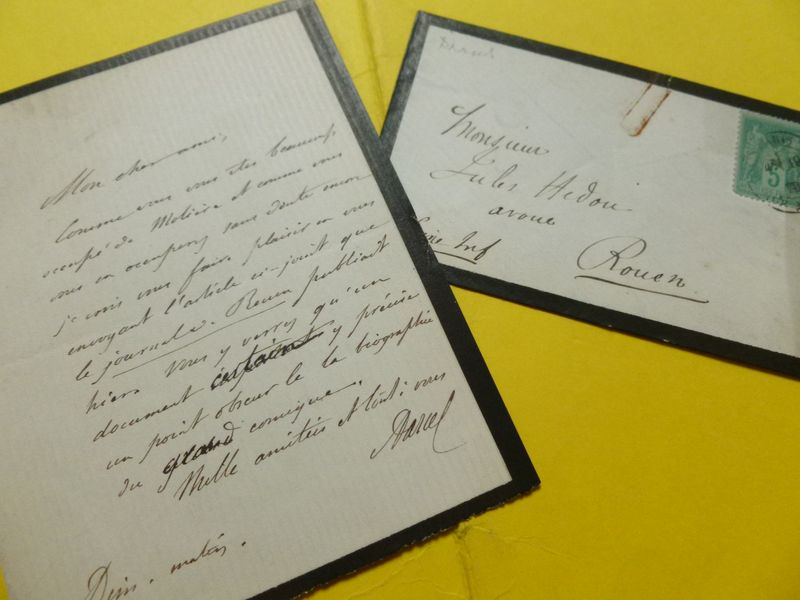 Mon cher ami,
Comme vous vous êtes beaucoup
occupé de Molière et comme vous
vous en occuperez sans doute encore
je crois vous faire plaisir en vous
envoyant l'article ci-joint que
le journal de Rouen publiait
hier. Vous y verrez qu'un
document certains y précise
un point obscur de la biographie
du grand comique.
Mille amitiés et tout à vous
Darcel
Dim. matin.
Darcel
Monsieur
Jules Hédou
avoué
Rouen
Seine Inf
5